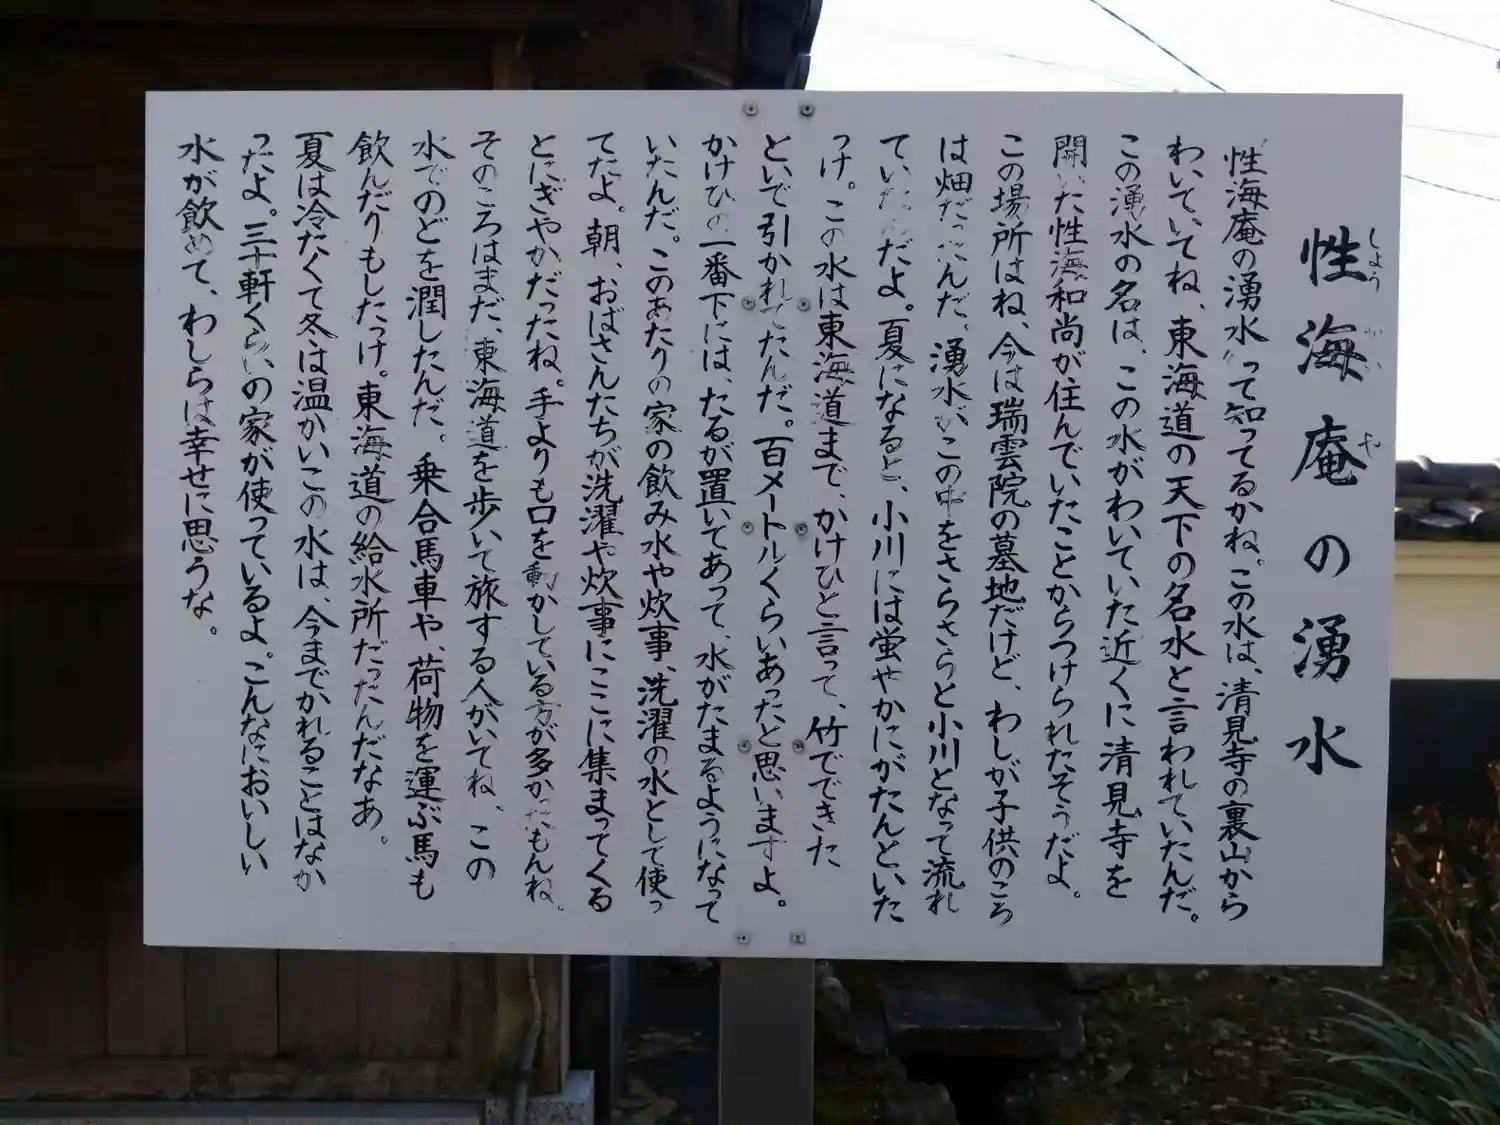 性海庵の湧水
しょう かい や
性海庵の湧水って知ってるかね。この水は、清見寺の裏山から
わいていてね、東海道の天下の名水と言われていたんだ。
この湧水の名は、この水がわいていた近くに清見寺を
開いた性海和尚が住んでいたことからつけられたそうだよ。
この場所はね、今は瑞雲院の墓地だけど、わしが子供のころ
は畑だったんだ。湧水がこの中をさらさらと小川となって流れ
ていたんだよ。夏になると、小川には蛍やかにがたんといた
っけ。この水は東海道まで、かけひと言って、竹でできた
といで引かれてたんだ。百メートルくらいあったと思いますよ。
かけひの一番下には、たるが置いてあって、水がたまるようになって
いたんだ。このあたりの家の飲み水や炊事、洗濯の水として使っ
てたよ。朝、おばさんたちが洗濯や炊事にここに集まってくる
とにぎやかだったね。手よりも口を動かしている方が多かったもんね。
そのころはまだ、東海道を歩いて旅する人がいてね、この
水でのどを潤したんだ。乗合馬車や、荷物を運ぶ馬も
飲んだりもしたっけ。東海道の給水所だったんだなあ。
夏は冷たくて冬は温かいこの水は、今までかれることはなか
ったよ。三十軒くらいの家が使っているよ。こんなにおいしい
水が飲めて、わしらは幸せに思うな。